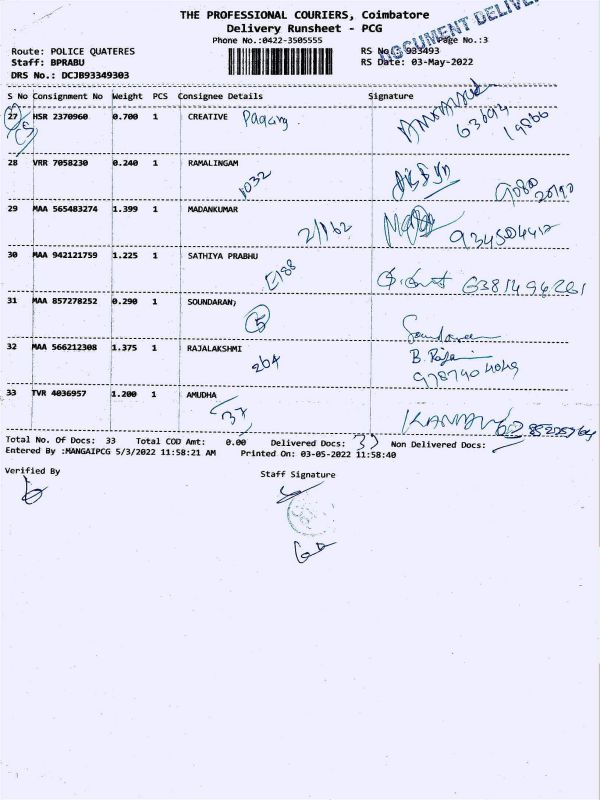 THE PROFESSIONAL COURIERS, Coimbatore
Delivery Runsheet - PCG
Phone No.:0422-3505555
Page No.:3
Route: POLICE QUATERES
RS No. 983493
Staff: BPRABU
RS Date: 03-May-2022
DRS No.: DCJB93349303
S No Consignment No Weight PCS Consignee Details Signature
27 HSR 2370960 0.700 1 CREATIVE
28 VRR 7058230 0.240 1 RAMALINGAM
1032
29 MAA 565483274 1.399 1 MADANKUMAR
2/162
30 MAA 942121759 1.225 1 SATHIYA PRABHU
E188
31 MAA 857278252 0.290 1 SOUNDARAN;
5
Soundaran
32 MAA 566212308 1.375 1 RAJALAKSHMI
264
33 TVR 4036957 1.200 1 AMUDHA
37
Total No. Of Docs: 33 Total COD Amt: 0.00 Delivered Docs: 33 Non Delivered Docs:
Entered By :MANGAIPCG 5/3/2022 11:58:21 AM Printed On: 03-05-2022 11:58:40
Verified By
Staff Signature